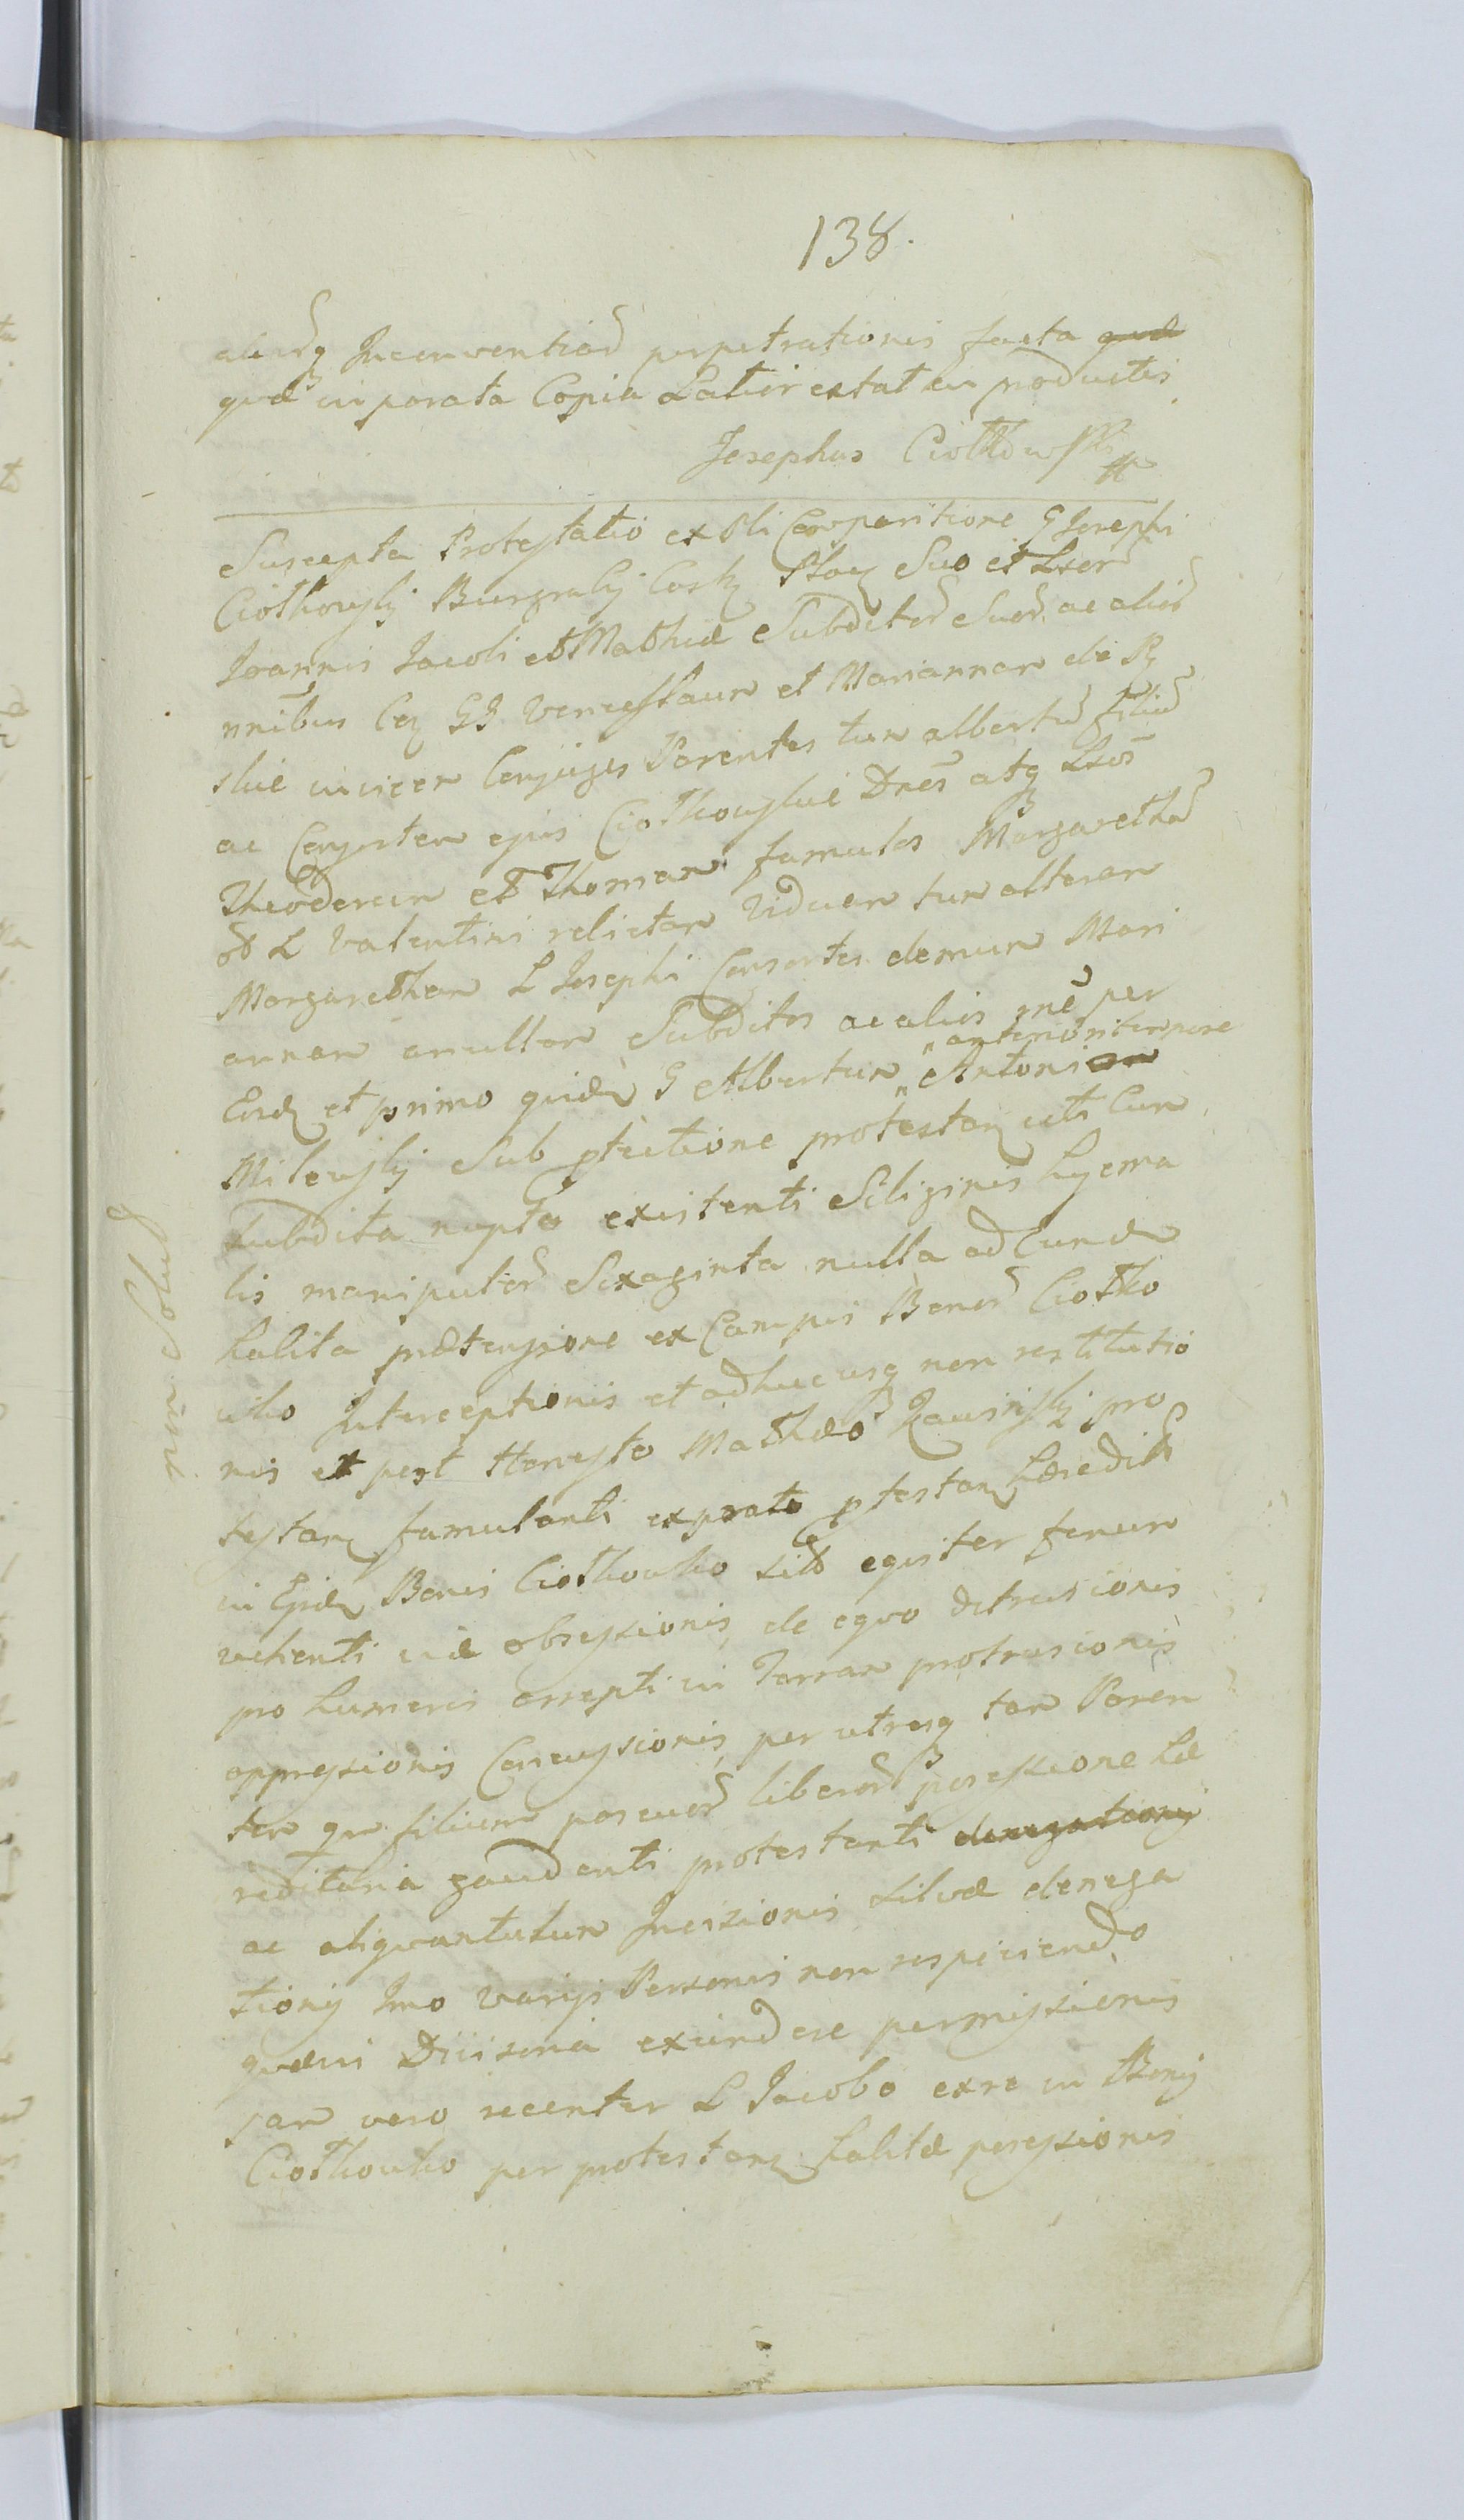 138.
aliorq Inconventiar perpetrationis facta quæ
quæ in parata Copia Latior extat in productis
Josephus Ciołkowski
Suscepta Protestatio ex Pli Comparitione G Josephi
Ciołkowsky Burgraby Castr Nom Suo et Laor
Joannis Jacobi et Mathiæ Subditor Suor ac alior
nnibus Cq GG Venceslaum et Mariannam de
skie invicem Conjuges Parentes tum albertu filiu
ac Consortem ejus Ciołkowskie Dnes atq Laos
Theodorum et Thomam famulos Margaretha
L Valentini relictam Viduam tum alteram
Margaretham L Josephi Consortes demum Mari
annam ancillam Subditos ac alios per
Eosd et primo quidem G Albertum anteriori tempore Antoni
Milewsky Sub ptectione protestan uti Cum
Subdita nupto existenti Siliginis hyema
lis manipulor Sexaginta nulla ad Eunde
habita prætensione ex Campis Bonor Ciołko
wko Interceptionis et adhucusq non restitutio
nis et post Honesto Mathæo pro
testan famulanti ex prato ptestan hæredit
in Ejsdem Bonis Ciołkowko sito equiter fenum
vehenti viæ obsessionis, de equo detrusionis
pro humeris arrepti in Terram protrusionis
oppressionis Concussionis per utrosq tam Paren
tem qm filium pascuor liberor possessione hæ
reditaria gaudenti protestanti denegationis
ac aliquantulum Incisionis silvæ denega
tionis Imo Varys Personis non respiciendo
quævi Divisoria exinde permissionis
jam vero recenter L Jacobo exre in Bonis
Ciołkowko per protestan habitæ possessionis
non Solud